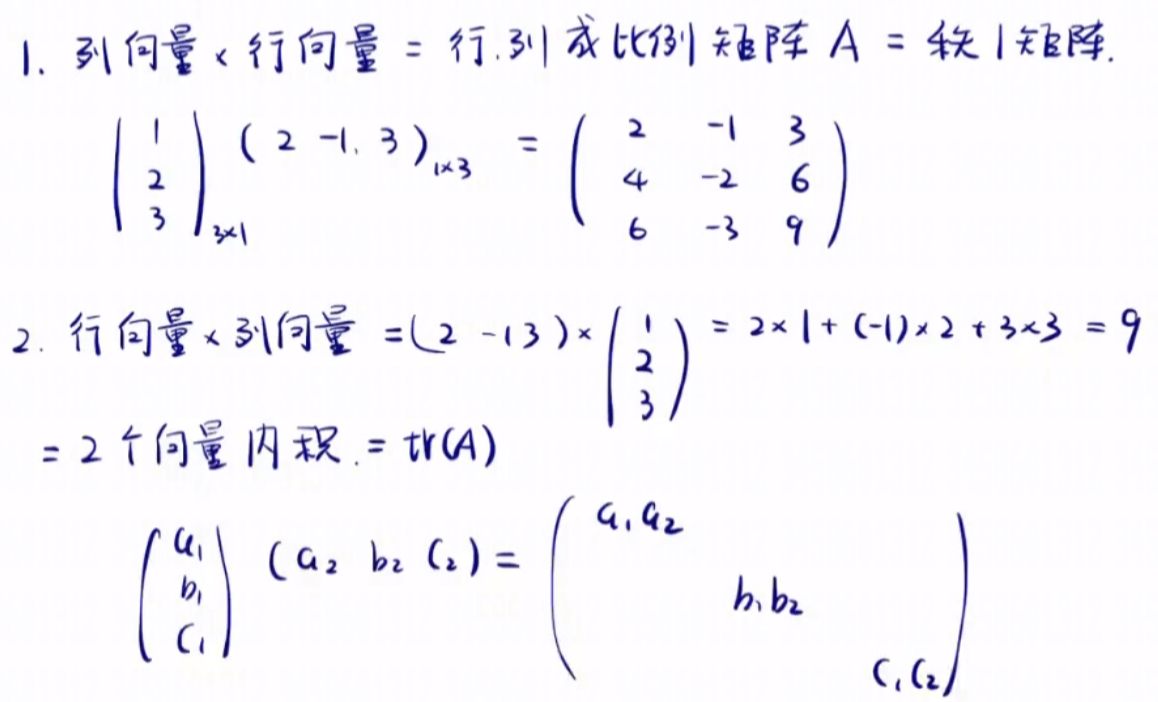 1. 列向量 × 行向量 = 行.列成比例矩阵 A = 秩1矩阵.
(1 2 3)₃ₓ₁ (2 -1. 3)₁ₓ₃ = (2 -1 3
4 -2 6
6 -3 9)
2. 行向量 × 列向量 = (2 -1 3) × (1 2 3) = 2×1 + (-1)×2 + 3×3 = 9
= 2个向量内积. = tr(A)
(a₁ b₁ c₁) (a₂ b₂ c₂) = (a₁a₂
b₁b₂
c₁c₂)